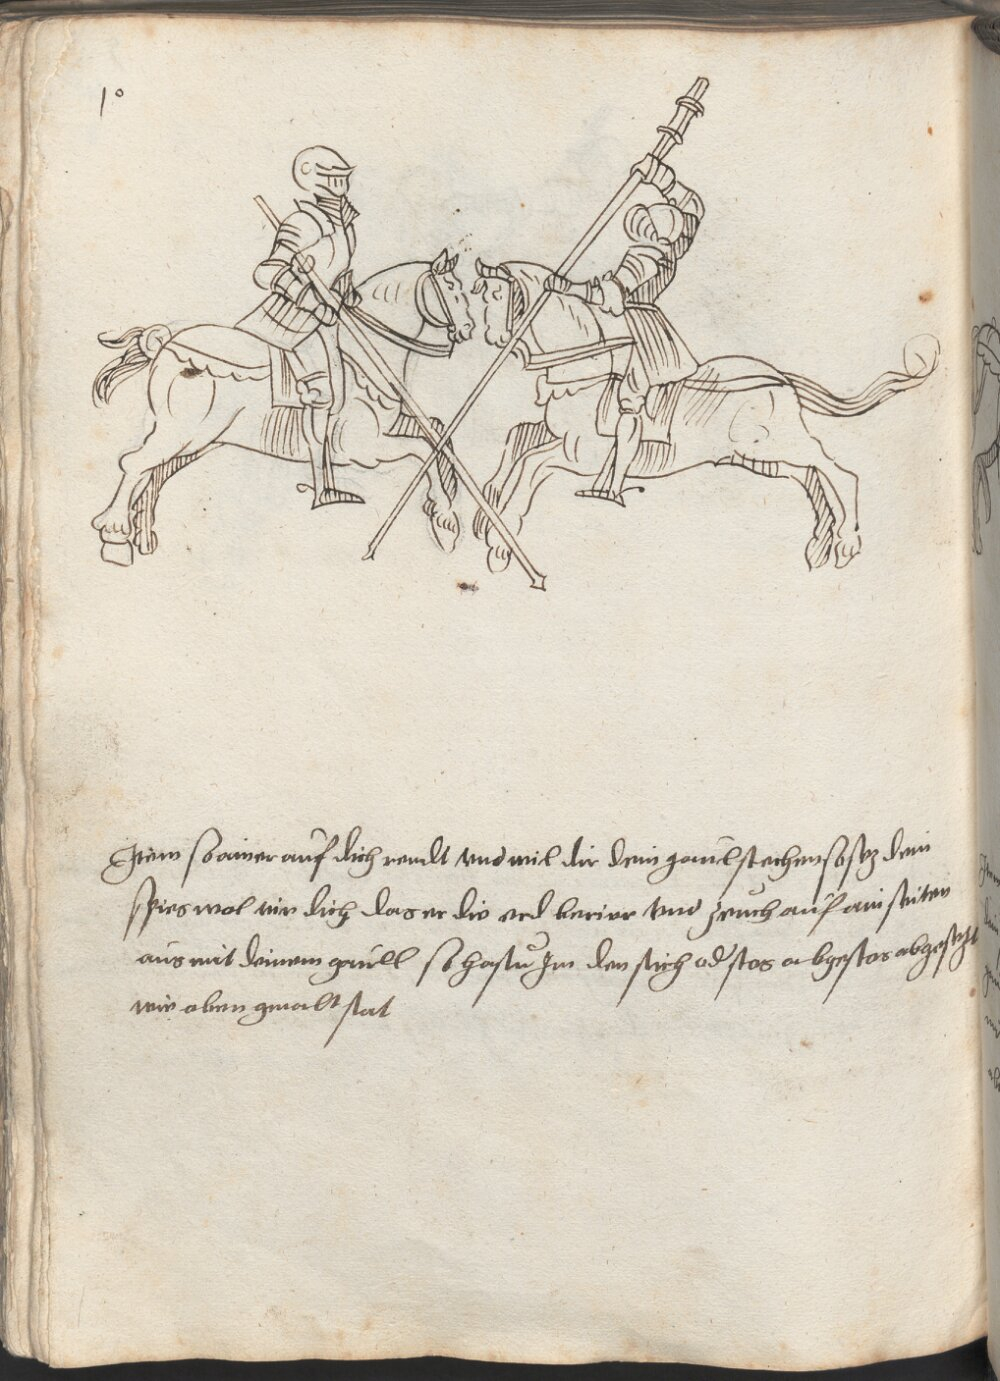 1°
Item so ainer auf dich rendt vnd wil dir dein gaul stechen so setz dein
spies wol vir dich das er die erd berier vnd zeuch auf ain seiten
aus mit deinem gaull so hastu Jm den stich od stos abgesetzt
wie oben gmalt stat